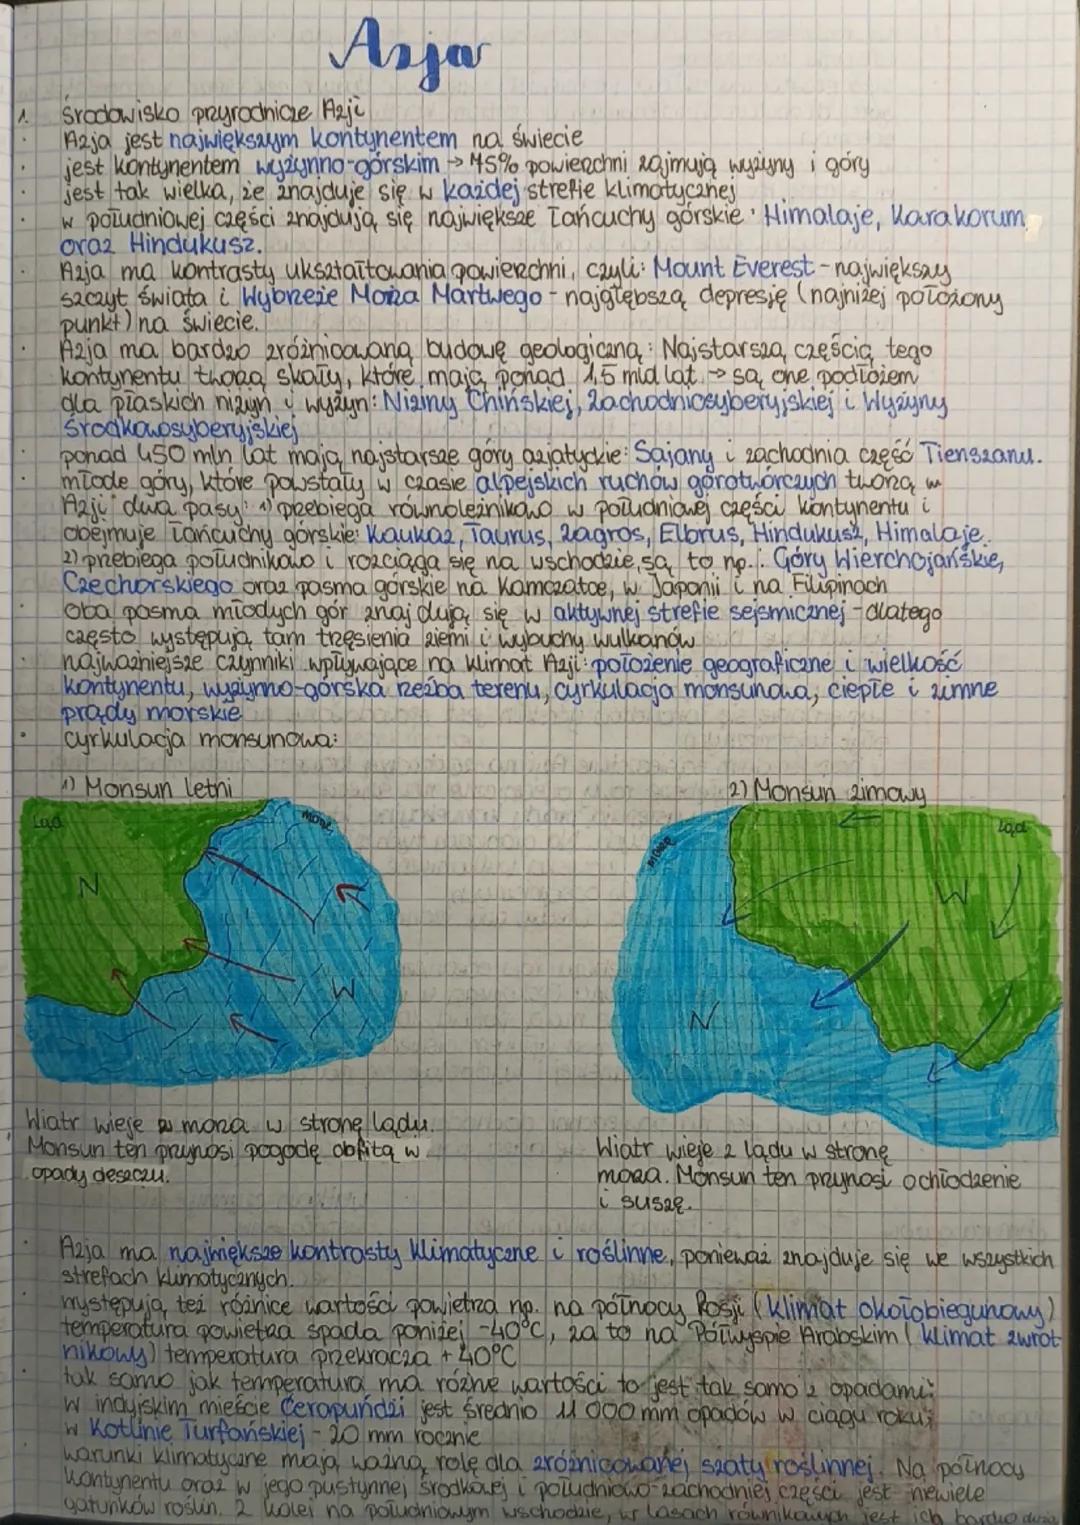 Azja
1. środowisko przyrodnicze Azji
· Azja jest największym kontynentem na świecie
· jest kontynentem wyżynno-górskim → 75% powierzchni zajmują wyżyny i góry
· jest tak wielka, że znajduje się w każdej strefie klimatycznej
· w południowej części znajdują się największe łańcuchy górskie: Himalaje, Karakorum,
oraz Hindukusz.
· Azja ma kontrasty ukształtowania powierzchni, czyli: Mount Everest - największy
szczyt świata i Wybrzeże Morza Martwego - najgłębszą depresję (najniżej położony
punkt) na świecie.
· Azja ma bardzo zróżnicowaną budowę geologiczną: Najstarszą częścią tego
kontynentu tworzą skały, które mają ponad 1,5 mld lat → są one podłożem
dla płaskich nizyn i wyżyn: Niziny Chińskiej, Zachodniosyberyjskiej i Wyżyny
Środkowosyberyjskiej
· ponad 450 mln lat mają najstarsze góry azjatyckie: Sajany i zachodnia część Tienszanu.
· młode góry, które powstały w czasie alpejskich ruchów górotwórczych tworzą w
Azji dwa pasy: 1) przebiega równoleżnikowo w południowej części kontynentu i
obejmuje łańcuchy górskie: Kaukaz, Taurus, Zagros, Elbrus, Hindukusz, Himalaje.
2) przebiega południkowo i rozciąga się na wschodzie, są to np.: Góry Wierchojańskie,
Czechorskiego oraz pasma górskie na Kamczatce, w Japonii i na Filipinach
· oba pasma młodych gór znajdują się w aktywnej strefie sejsmicznej - dlatego
często występują tam trzęsienia ziemi i wybuchy wulkanów
· najważniejsze czynniki wpływające na klimat Azji: położenie geograficzne i wielkość
kontynentu, wyżynno-górska rzeźba terenu, cyrkulacja monsunowa, ciepłe i zimne
prądy morskie
· cyrkulacja monsunowa:
1) Monsun letni
2) Monsun zimowy
Ląd
morze
N
W
morze
Ląd
W
N
Wiatr wieje z morza w stronę lądu.
Monsun ten przynosi pogodę obfitą w
opady deszczu.
Wiatr wieje z lądu w stronę
morza. Monsun ten przynosi ochłodzenie
i suszę.
· Azja ma największe kontrasty klimatyczne i roślinne, ponieważ znajduje się we wszystkich
strefach klimatycznych.
· występują też różnice wartości powietrza np. na północy Rosji (klimat okołobiegunowy)
temperatura powietrza spada poniżej -40°C, za to na Półwyspie Arabskim (klimat zwrot
nikowy) temperatura przekracza +40°C
· tak samo jak temperatura ma różne wartości to jest tak samo z opadami:
w indyjskim mieście Czerapuńdżi jest średnio 11 000 mm opadów w ciągu roku;
w Kotlinie Turfańskiej - 20 mm rocznie
· warunki klimatyczne mają ważną rolę dla zróżnicowanej szaty roślinnej. Na północy
kontynentu oraz w jego pustynnej środkowej i południowo-zachodniej części jest niewiele
gatunków roślin. Z kolei na południowym wschodzie, w lasach równikowych jest ich bardzo dużo